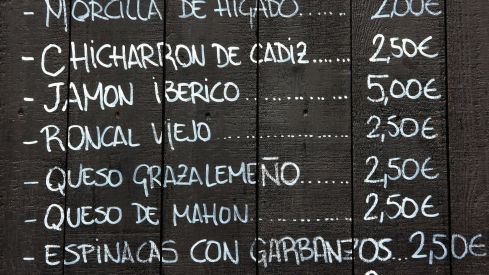 - MORCILLA DE HIGADO. 2,00€
- CHICHARRON DE CADIZ....... 2,50€
- JAMON IBERICO ........... 5,00€
- RONCAL VIEJO ............. 2,50€
- QUESO GRAZALEMEÑO....... 2,50€
- QUESO DE MAHON........... 2,50€
- ESPINACAS CON GARBANZOS...2,50€